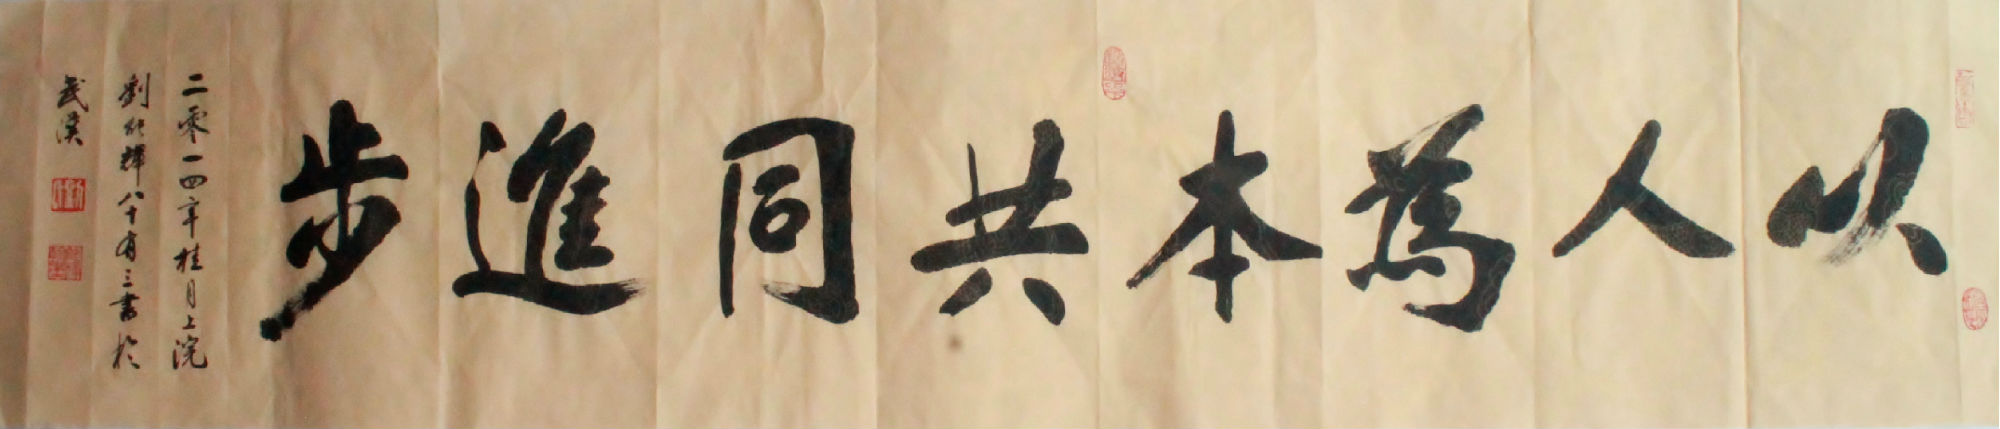 以人為本共同進步
二零一四年桂月上浣
劉化輝八十有三書於
武漢